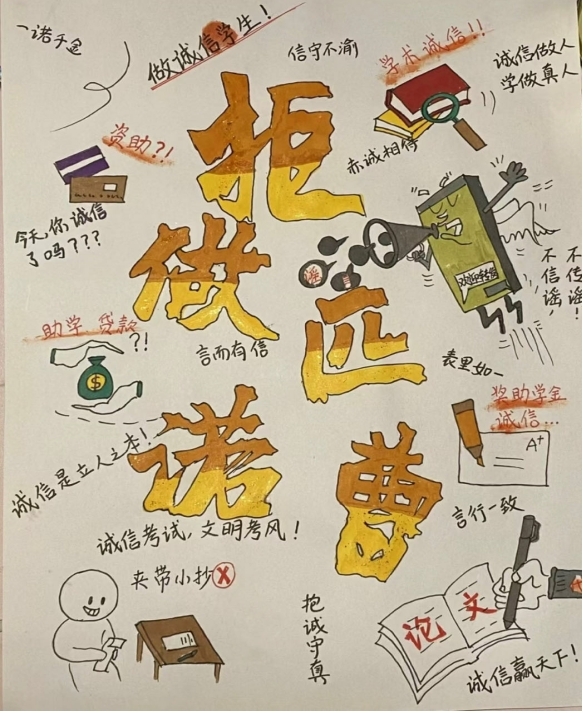 一诺千金
做诚信学生！
信守不渝
学术诚信！！
诚信做人
学做真人
资助？！
赤诚相待
今天，你诚信
了吗？？？
拒
做
匹
诺
曹
谣
不信谣，
不传谣！
助学贷款
？！
$
言而有信
表里如一
奖助学金
诚信…
A+
诚信是立人之本！
诚信考试，文明考风！
言行一致
夹带小抄
X
抱诚守真
论文
诚信赢天下！